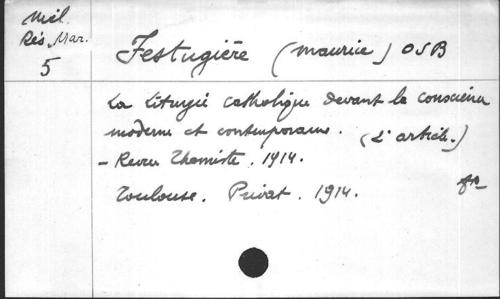 Mél.
Rés. Mar.
5
Festugière (Maurice) OSB
La liturgie catholique devant la conscience
moderne et contemporaine. (2e article.)
- Revue Thomiste. 1914.
Toulouse. Privat. 1914.